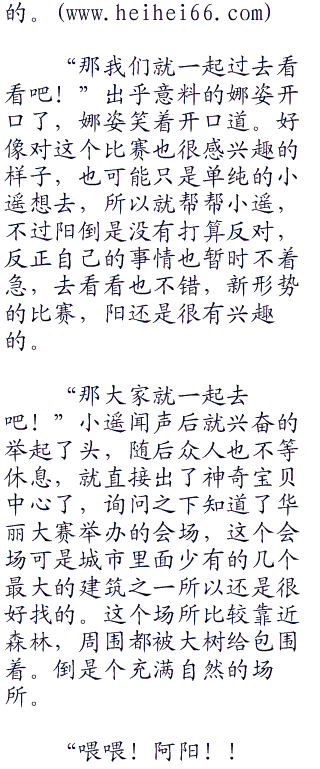 的。(www.heihei66.com)
“那我们就一起过去看
看吧！”出乎意料的娜姿开
口了，娜姿笑着开口道。好
像对这个比赛也很感兴趣的
样子，也可能只是单纯的小
遥想去，所以就帮帮小遥，
不过阳倒是没有打算反对，
反正自己的事情也暂时不着
急，去看看也不错，新形势
的比赛，阳还是很有兴趣
的。
“那大家就一起去
吧！”小遥闻声后就兴奋的
举起了头，随后众人也不等
休息，就直接出了神奇宝贝
中心了，询问之下知道了华
丽大赛举办的会场，这个会
场可是城市里面少有的几个
最大的建筑之一所以还是很
好找的。这个场所比较靠近
森林，周围都被大树给包围
着。倒是个充满自然的场
所。
“喂喂！阿阳！！